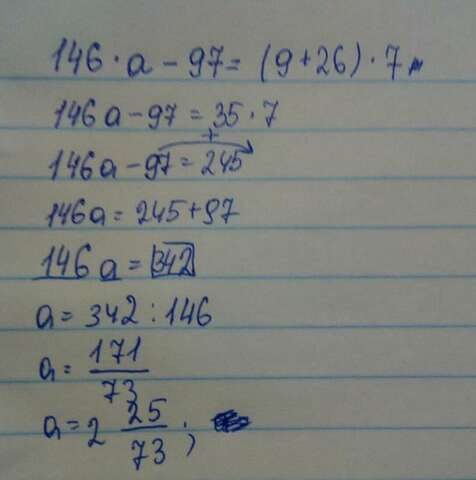 146 · a − 97 = (9 + 26) · 7
146a − 97 = 35 · 7
+
146a − 97 = 245
146a = 245 + 97
146a = 342
a = 342 : 146
a = 171/73
a = 2 25/73 ;